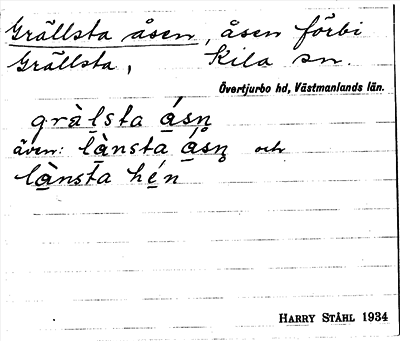 Grällsta åsen, åsen förbi
Grällsta, Kila sn.
Övertjurbo hd, Västmanlands län.
grä̀lsta ásn̥
även: lànsta ásn̥ och
lànsta hén
HARRY STÅHL 1934